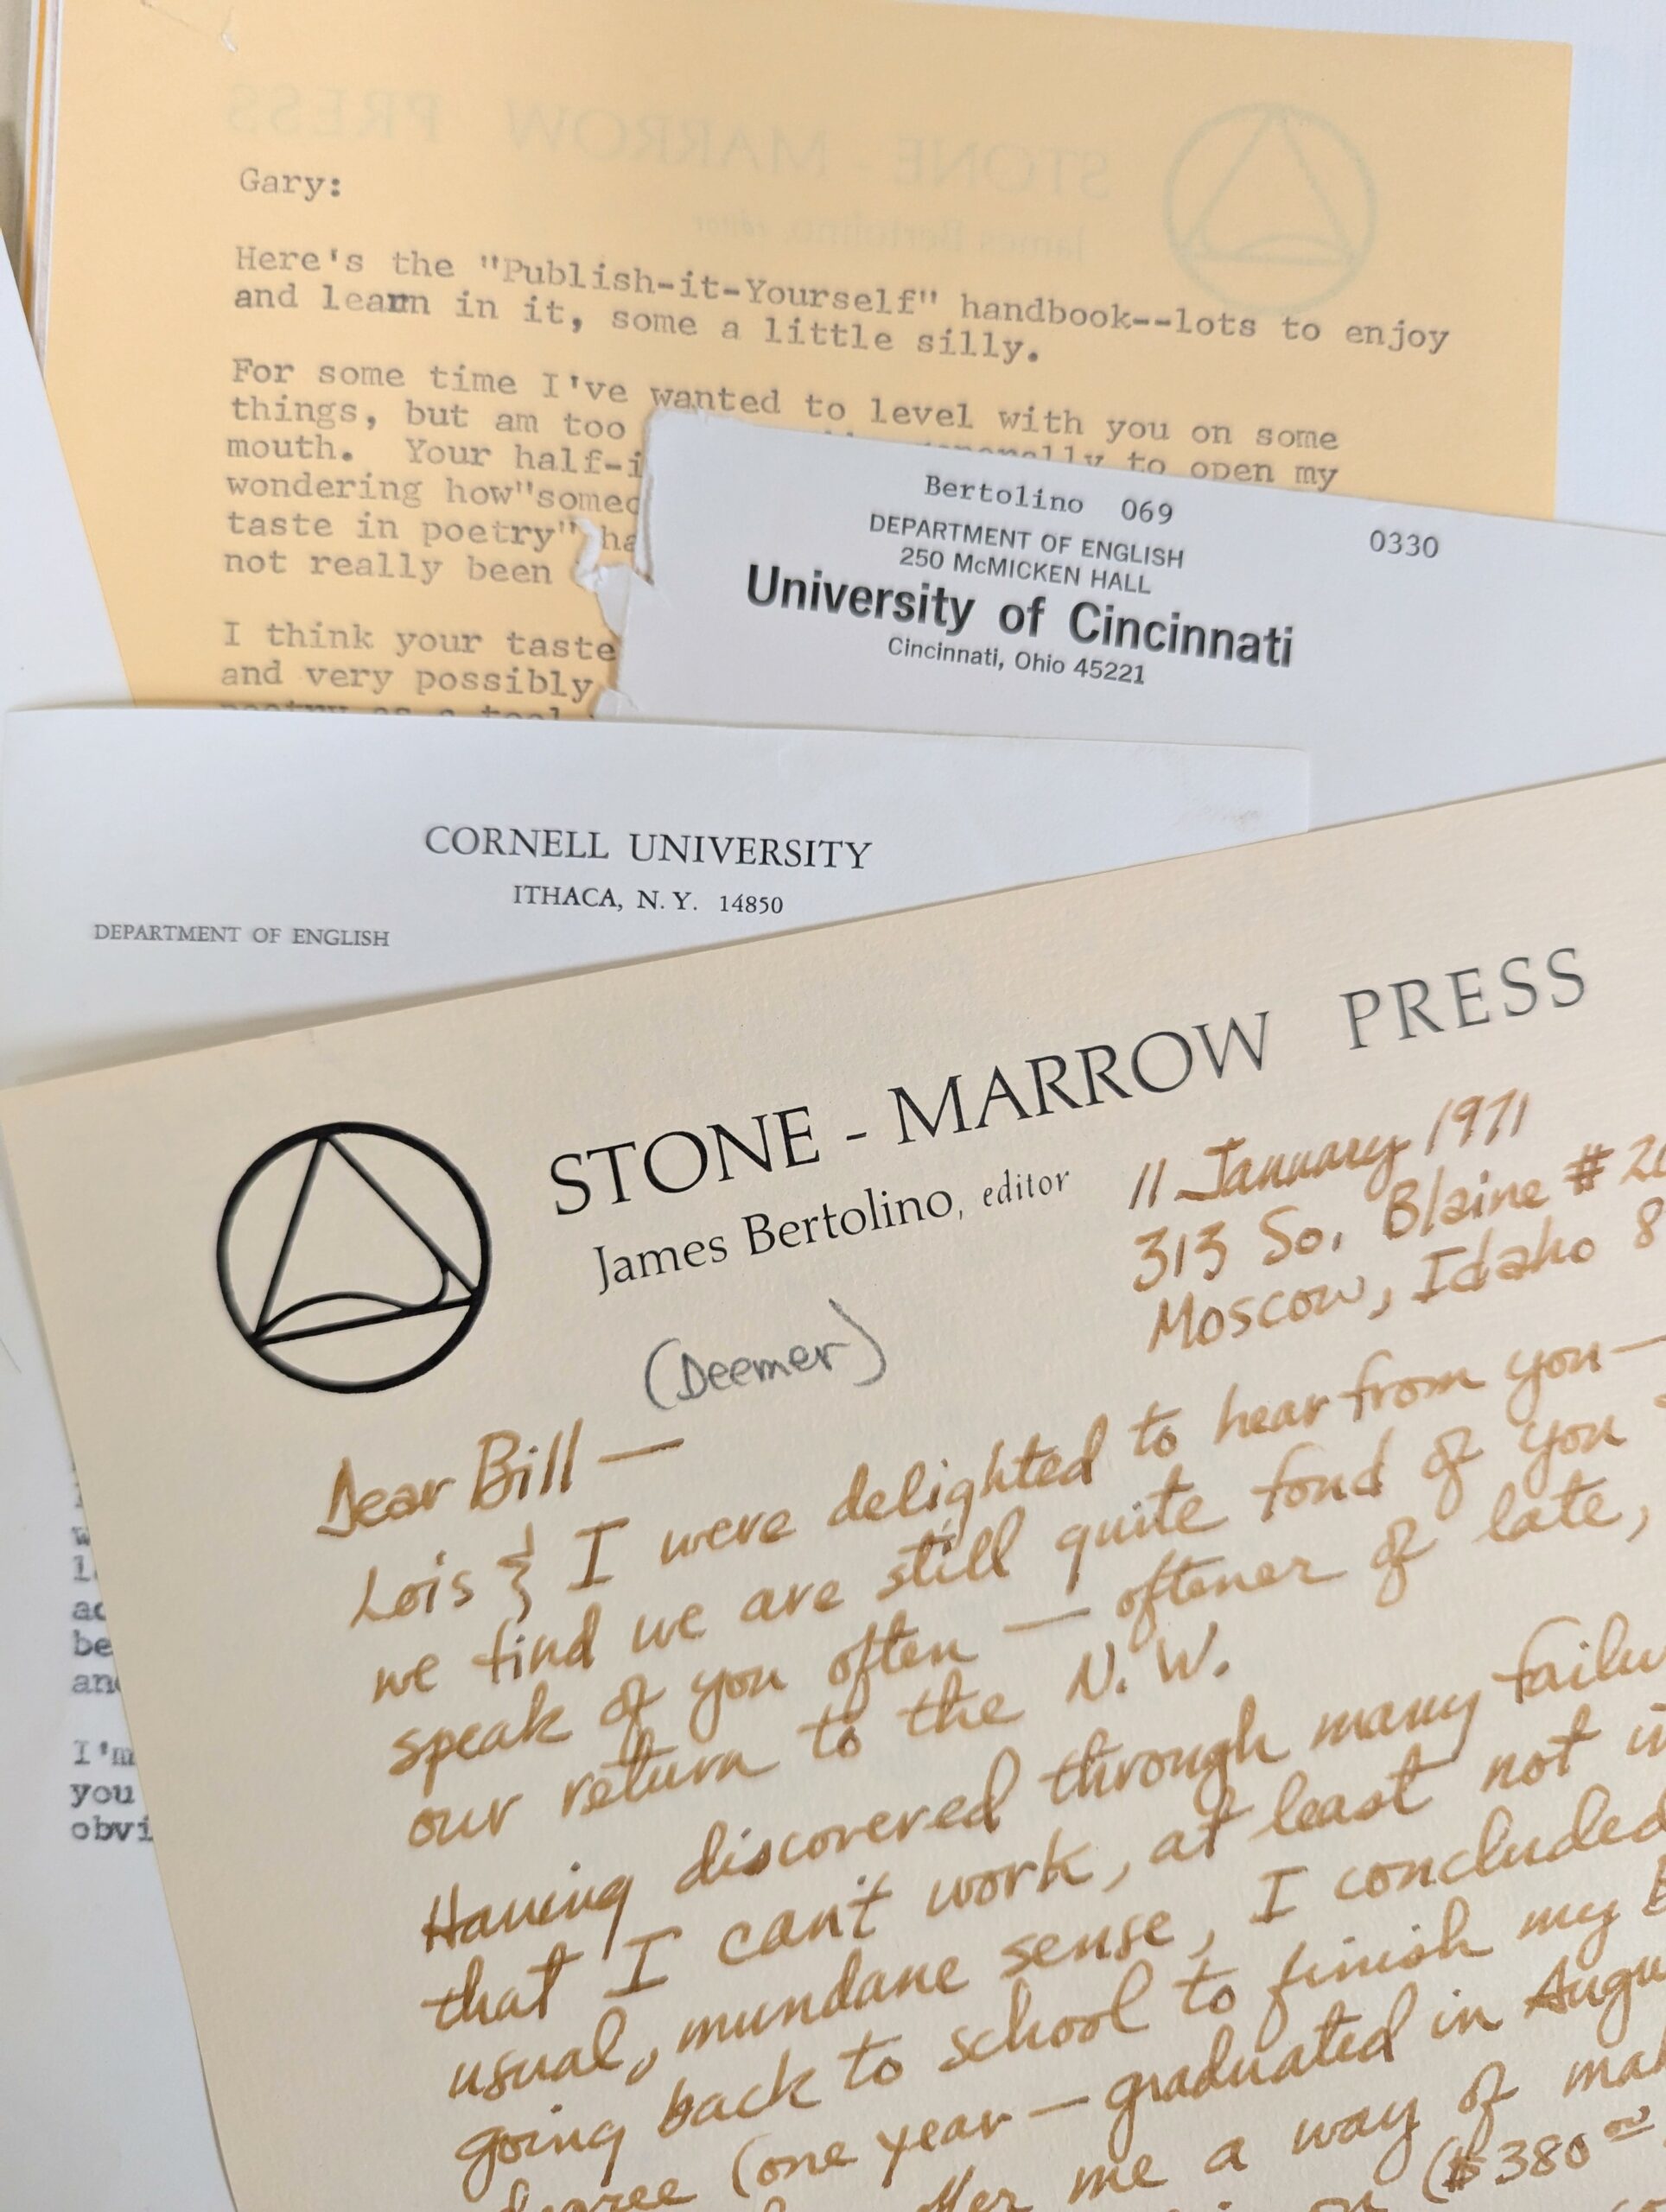 STONE - MARROW PRESS
James Bertolino, editor
Gary:
Here's the "Publish-it-Yourself" handbook--lots to enjoy
and learn in it, some a little silly.
For some time I've wanted to level with you on some
things, but am too to open my
mouth. Your half-i
wondering how"someo
taste in poetry" ha
not really been
I think your taste
and very possibly
poetry as a tool
Bertolino 069
0330
DEPARTMENT OF ENGLISH
250 McMICKEN HALL
University of Cincinnati
Cincinnati, Ohio 45221
CORNELL UNIVERSITY
ITHACA, N. Y. 14850
DEPARTMENT OF ENGLISH
ac
be
and
I'm
you
obvi
STONE - MARROW PRESS
James Bertolino, editor
11 January 1971
313 So. Blaine #20
Moscow, Idaho 8
(Deemer)
Dear Bill —
Lois & I were delighted to hear from you —
we find we are still quite fond of you
speak of you often — oftener of late,
our return to the N.W.
Having discovered through many failu
that I can't work, at least not i
usual, mundane sense, I concluded
going back to school to finish my B
degree (one year — graduated in Augu
me a way of mak
($380